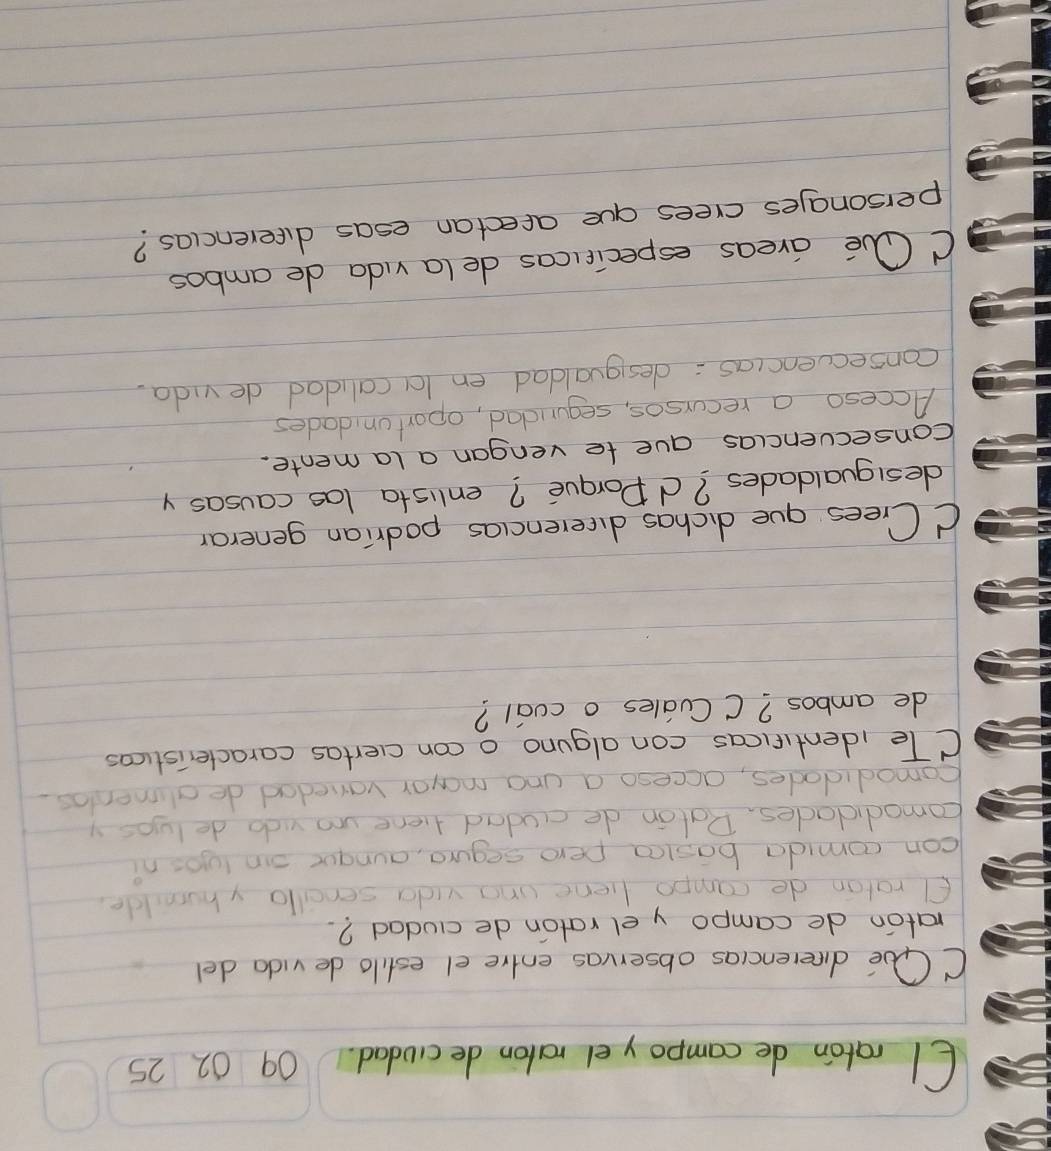 El ratón de campo y el ratón de ciudad. 09 02 25
¿Qué diferencias observas entre el estilo de vida del
ratón de campo y el ratón de ciudad?.
El ratón de campo tiene una vida sencilla y humilde.
con comida básica pero segura, aunque sin lujos ni
comodidades. Ratón de ciudad tiene una vida de lujos y
comodidades, acceso a una mayor variedad de alimentos.
¿Te identificas con alguno o con ciertas características
de ambos? ¿Cuáles o cuál?
¿Crees que dichas diferencias podrían generar
desigualdades? ¿Porqué? enlista las causas y
consecuencias que te vengan a la mente.
Acceso a recursos, seguridad, oportunidades
consecuencias: desigualdad en la calidad de vida.
¿Qué áreas específicas de la vida de ambos
personajes crees que afectan esas diferencias?